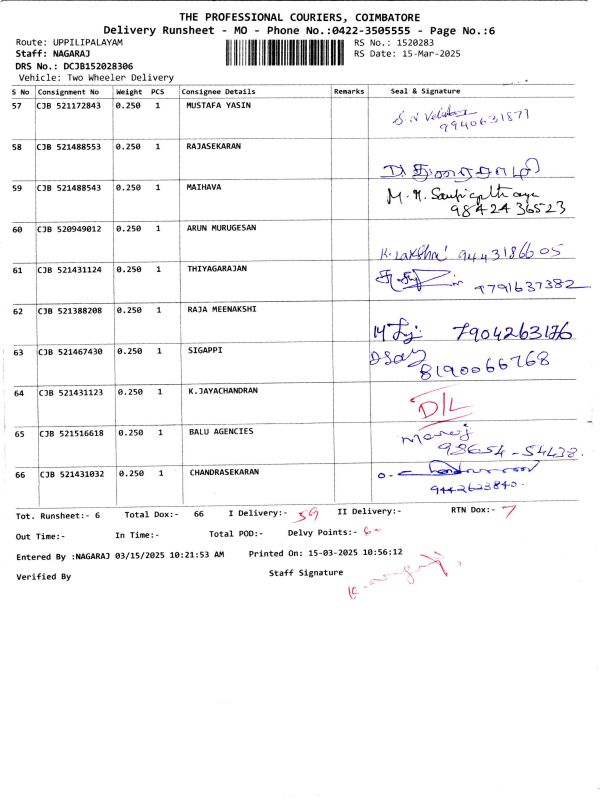 THE PROFESSIONAL COURIERS, COIMBATORE
Delivery Runsheet - MO - Phone No.:0422-3505555 - Page No.:6
Route: UPPILIPALAYAM RS No.: 1520283
Staff: NAGARAJ RS Date: 15-Mar-2025
DRS No.: DCJB152028306
Vehicle: Two Wheeler Delivery
S No Consignment No Weight PCS Consignee Details Remarks Seal & Signature
57 CJB 521172843 0.250 1 MUSTAFA YASIN
9940631871
58 CJB 521488553 0.250 1 RAJASEKARAN
59 CJB 521488543 0.250 1 MAIHAVA
M. M.
9842436523
60 CJB 520949012 0.250 1 ARUN MURUGESAN
K. Lakshmi 9443186605
61 CJB 521431124 0.250 1 THIYAGARAJAN
9791637382
62 CJB 521388208 0.250 1 RAJA MEENAKSHI
7904263176
63 CJB 521467430 0.250 1 SIGAPPI
8190066768
64 CJB 521431123 0.250 1 K.JAYACHANDRAN
D/L
65 CJB 521516618 0.250 1 BALU AGENCIES
Manoj
98654-54438.
66 CJB 521431032 0.250 1 CHANDRASEKARAN
9442633840.
Tot. Runsheet:- 6 Total Dox:- 66 I Delivery:- 59 II Delivery:- RTN Dox:- 7
Out Time:- In Time:- Total POD:- Delvy Points:-
Entered By :NAGARAJ 03/15/2025 10:21:53 AM Printed On: 15-03-2025 10:56:12
Verified By Staff Signature